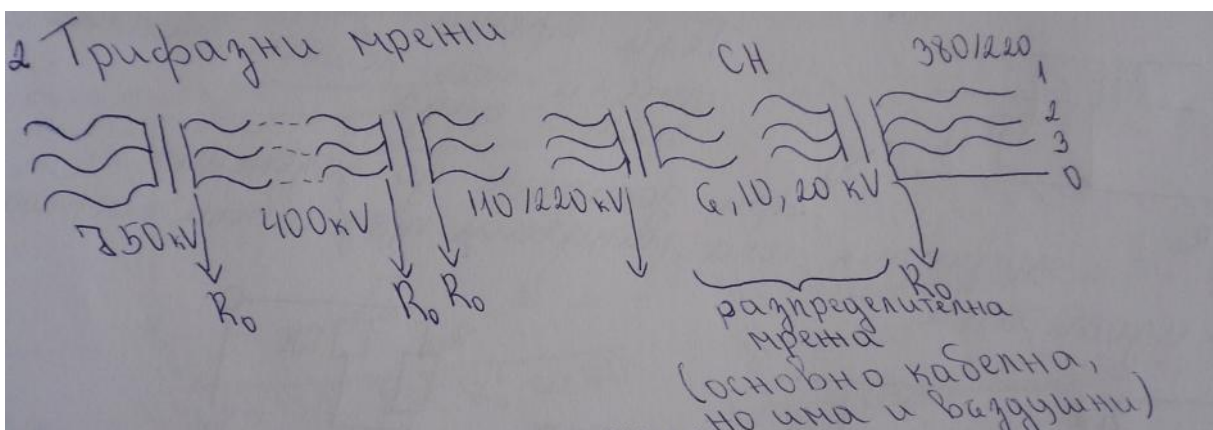 2 Трифазни мрежи
СН
380/220
1
2
3
0
750kV
400kV
110/220kV
6, 10, 20 kV
R₀
R₀
R₀
R₀
разпределителна
мрежа
(основно кабелна,
но има и въздушни)